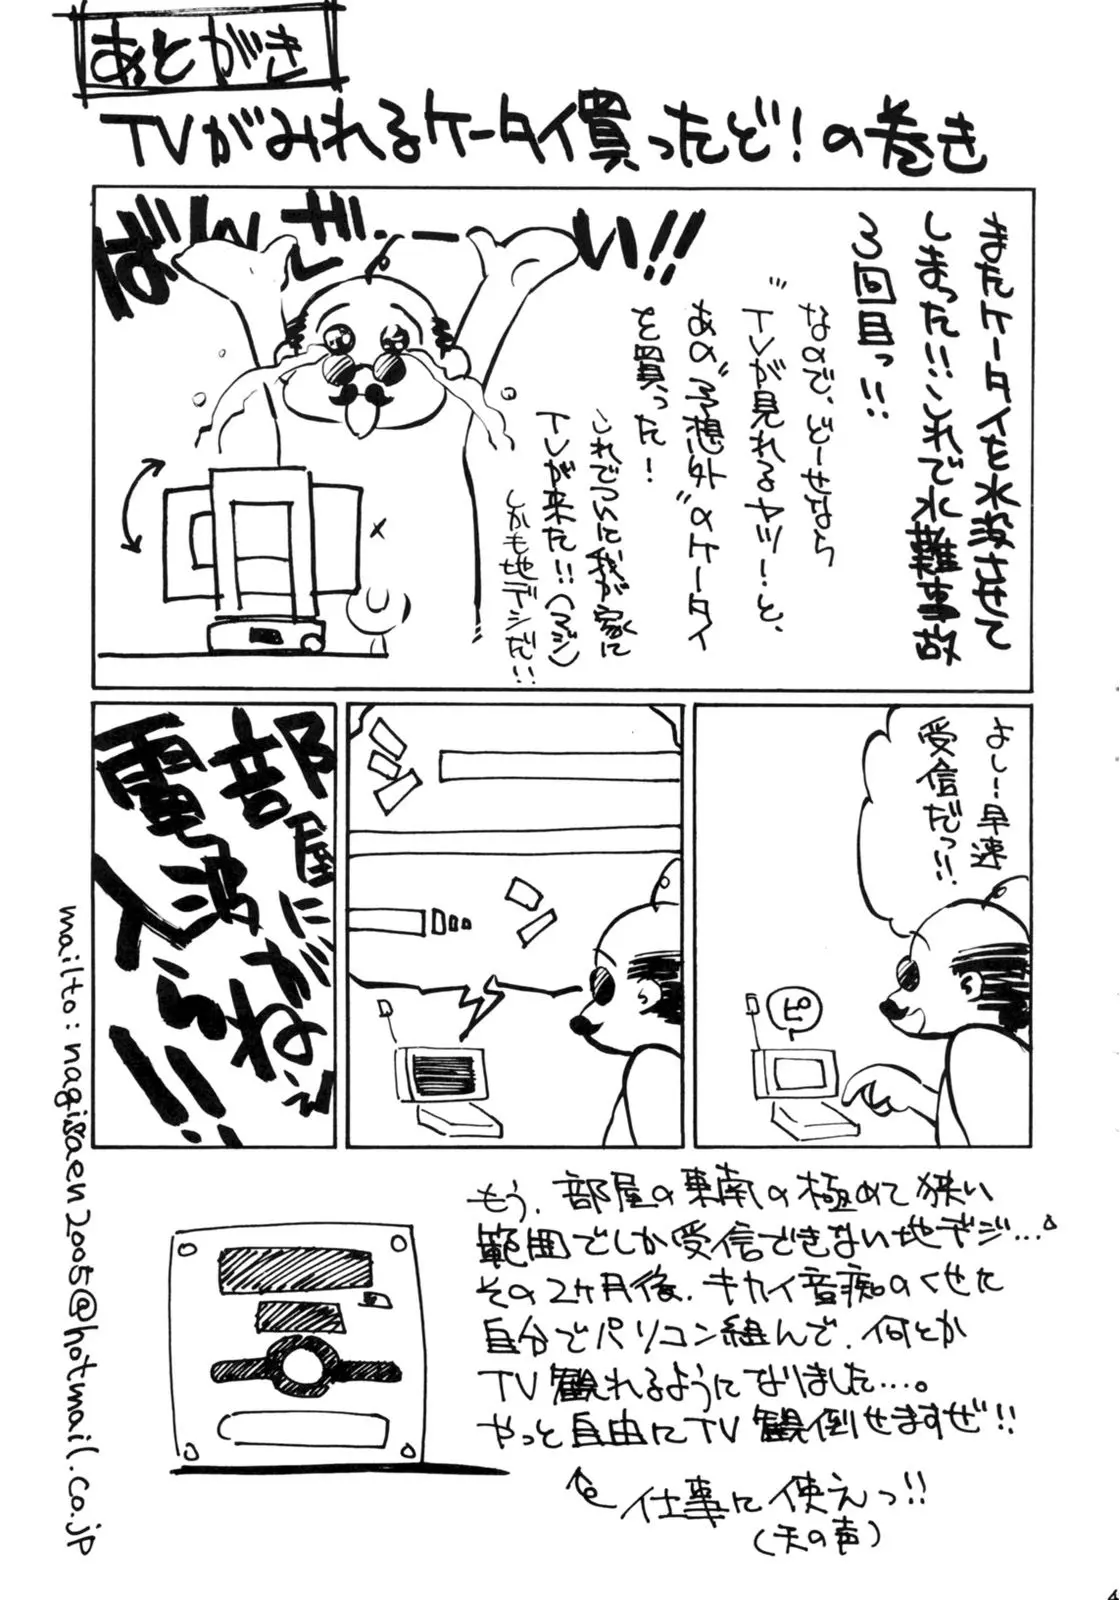 あとがき
TVがみれるケータイ買ったど!の巻き
ばんざーい!!
またケータイを水没させて
しまった!!これで水難事故
3回目っ!!
なので、どーせなら
"TVが見れるヤツ!"と、
あの"予想外"のケータイ
を買った!
これでついに我が家に
TVが来た!!(マジ)
しかも地デジだ!!
よし!早速
受信だっ!!
ピ
部屋に
電波がねぇ
入らん!!
もう、部屋の東南の極めて狭い
範囲でしか受信できない地デジ...。
その2ケ月後、キカイ音痴のくせた
自分でパソコン組んで、何とか
TV観れるようになりました...。
やっと自由にTV観倒せますぜ!!
仕事に使えっ!!
(天の声)
mailto:nagisaen2005@hotmail.co.jp
4